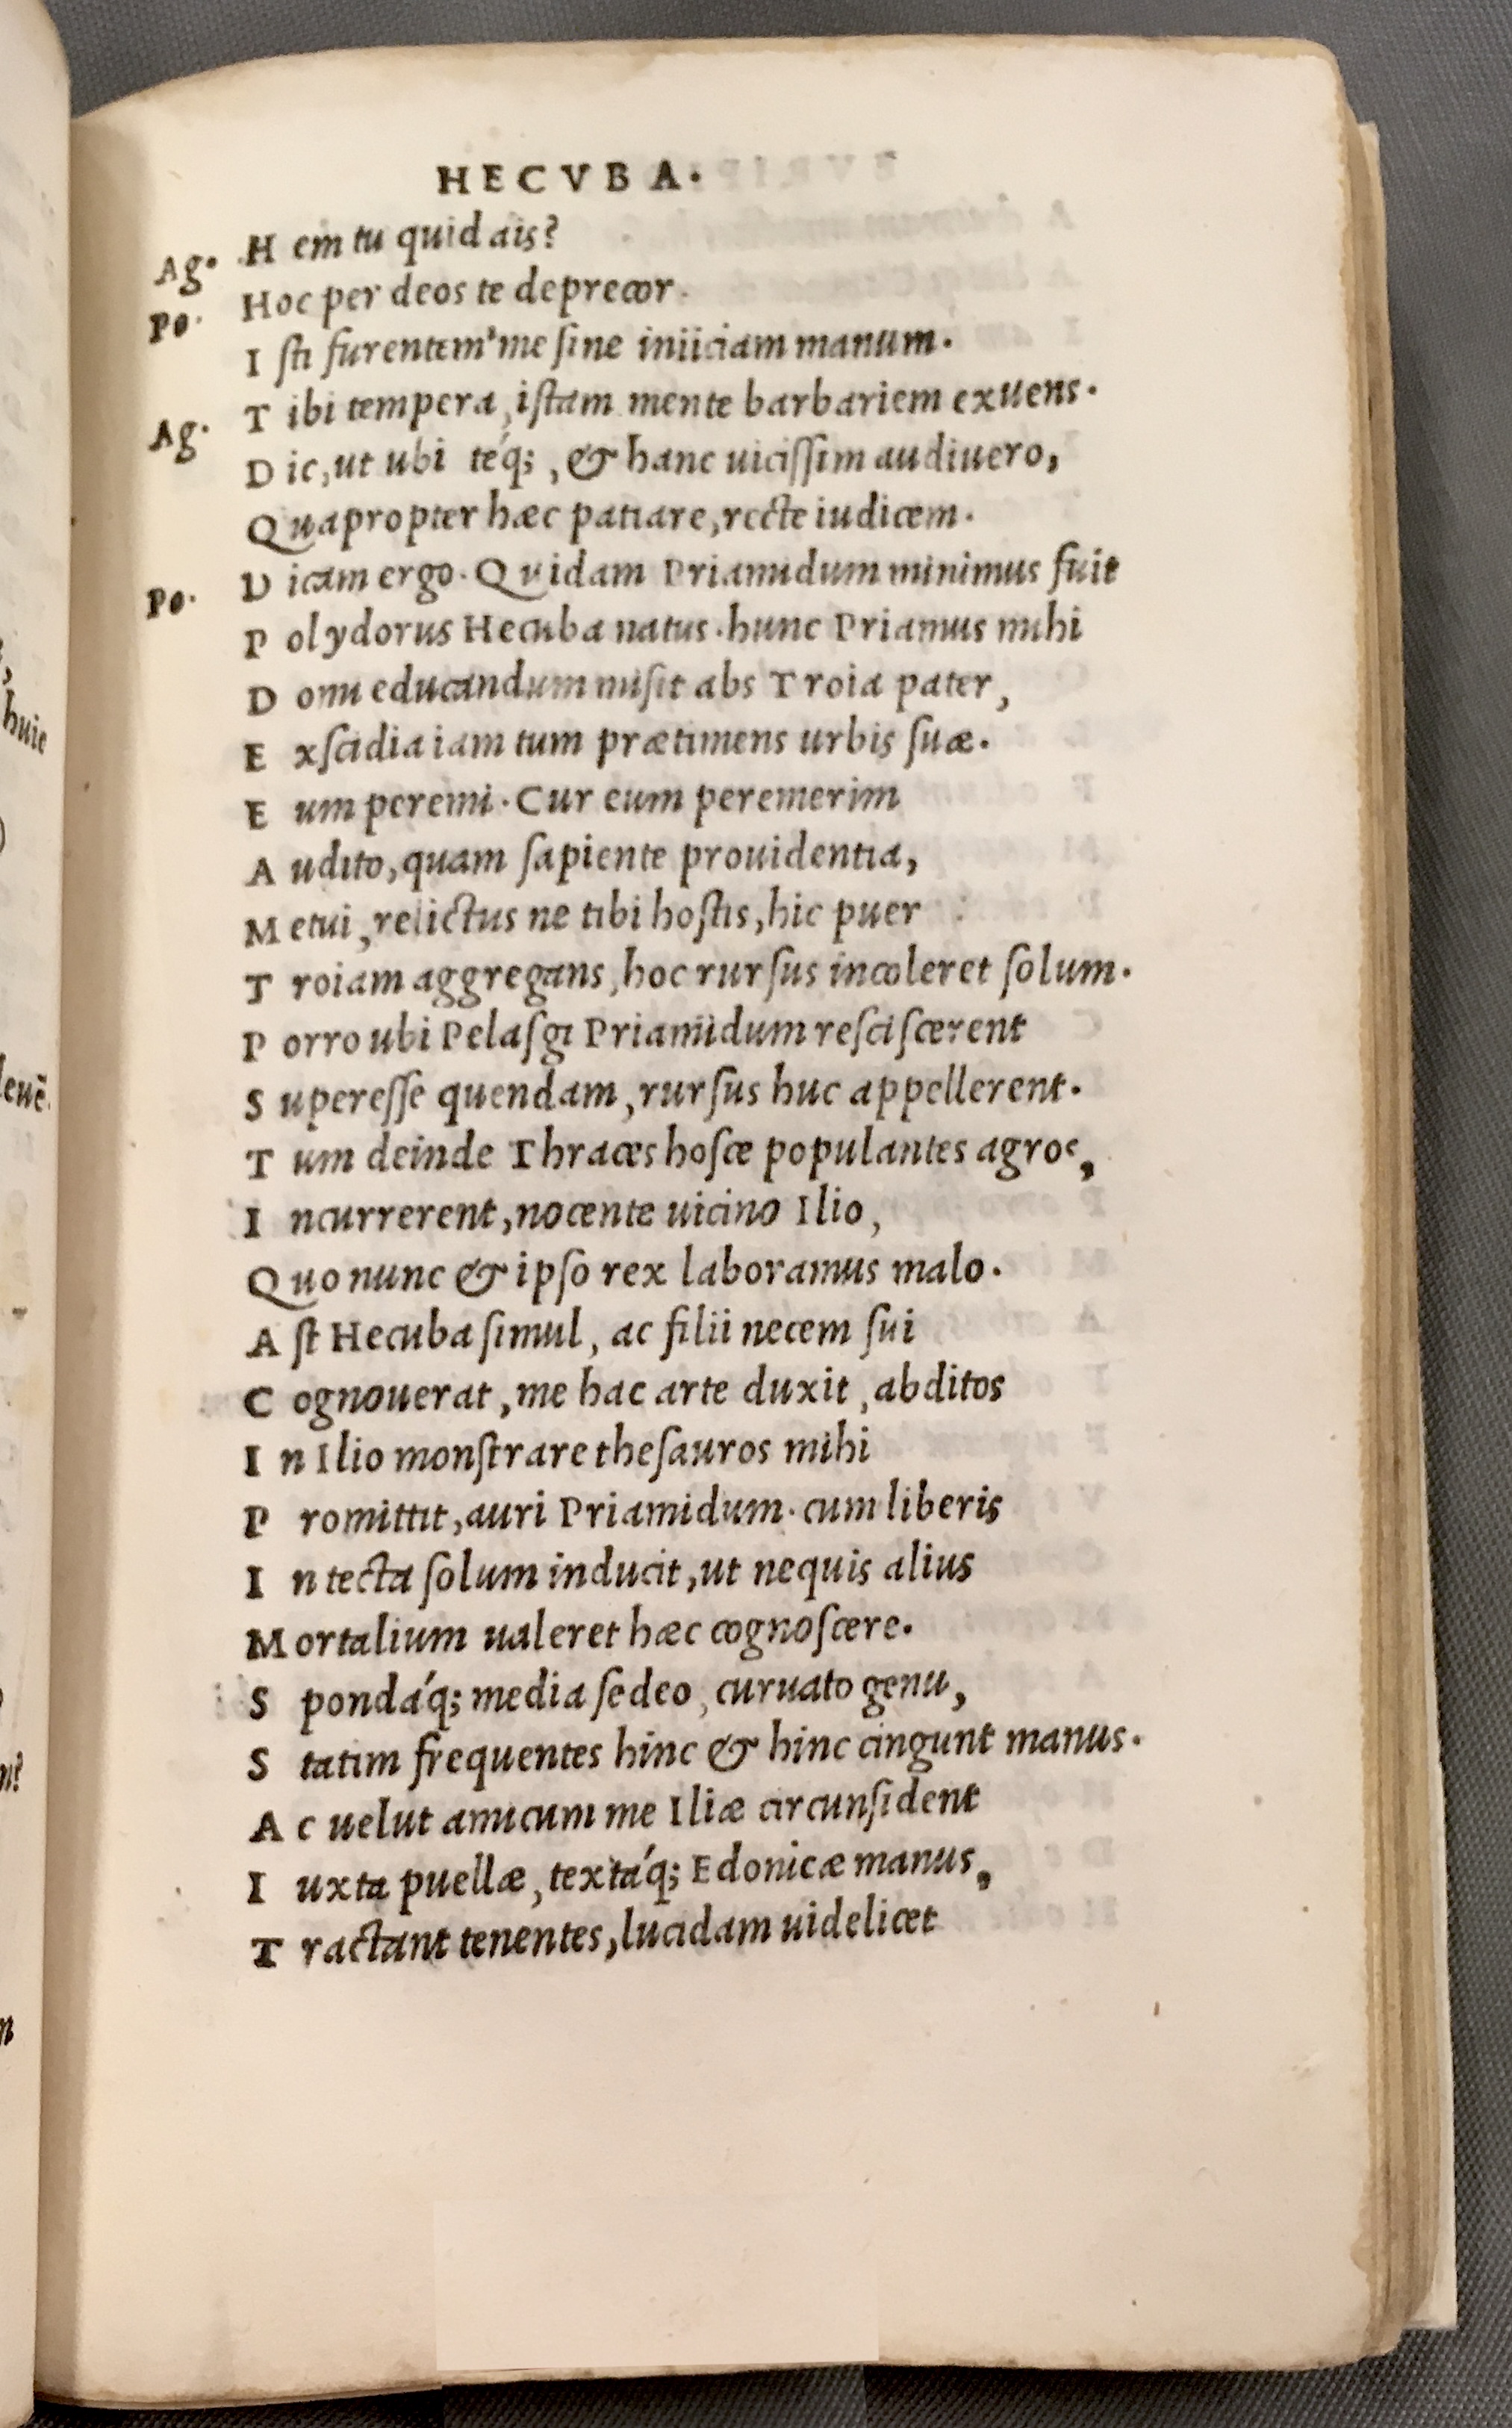 HECVBA.
Ag. Hem tu quid ais?
Po. Hoc per deos te deprecor.
Isti furentem me sine iniiciam manum.
Ag. Tibi tempera, istam mente barbariem exuens.
Dic, ut ubi téq;, & hanc uicissim audiuero,
Quapropter hæc patiare, recte iudicem.
Po. Dicam ergo. Quidam Priamidum minimus fuit
Polydorus Hecuba natus. hunc Priamus mihi
Domi educandum misit abs Troia pater,
Exscidia iam tum prætimens urbis suæ.
Eum peremi. Cur eum peremerim
Audito, quam sapiente prouidentia,
Metui, relictus ne tibi hostis, hic puer
Troiam aggregans, hoc rursus incoleret solum.
Porro ubi Pelasgi Priamidum resciscerent
Superesse quendam, rursus huc appellerent.
Tum deinde Thraces hosce populantes agros,
Incurrerent, nocente uicino Ilio,
Quo nunc & ipso rex laboramus malo.
Ast Hecuba simul, ac filii necem sui
Cognouerat, me hac arte duxit, abditos
In Ilio monstrare thesauros mihi
Promittit, auri Priamidum. cum liberis
In tecta solum inducit, ut nequis alius
Mortalium ualeret hæc cognoscere.
Spondáq; media sedeo, curuato genu,
Statim frequentes hinc & hinc cingunt manus.
Ac uelut amicum me Iliæ circunsident
Iuxta puellæ, textáq; Edonicæ manus,
Tractant tenentes, lucidam uidelicet
huic
leuē